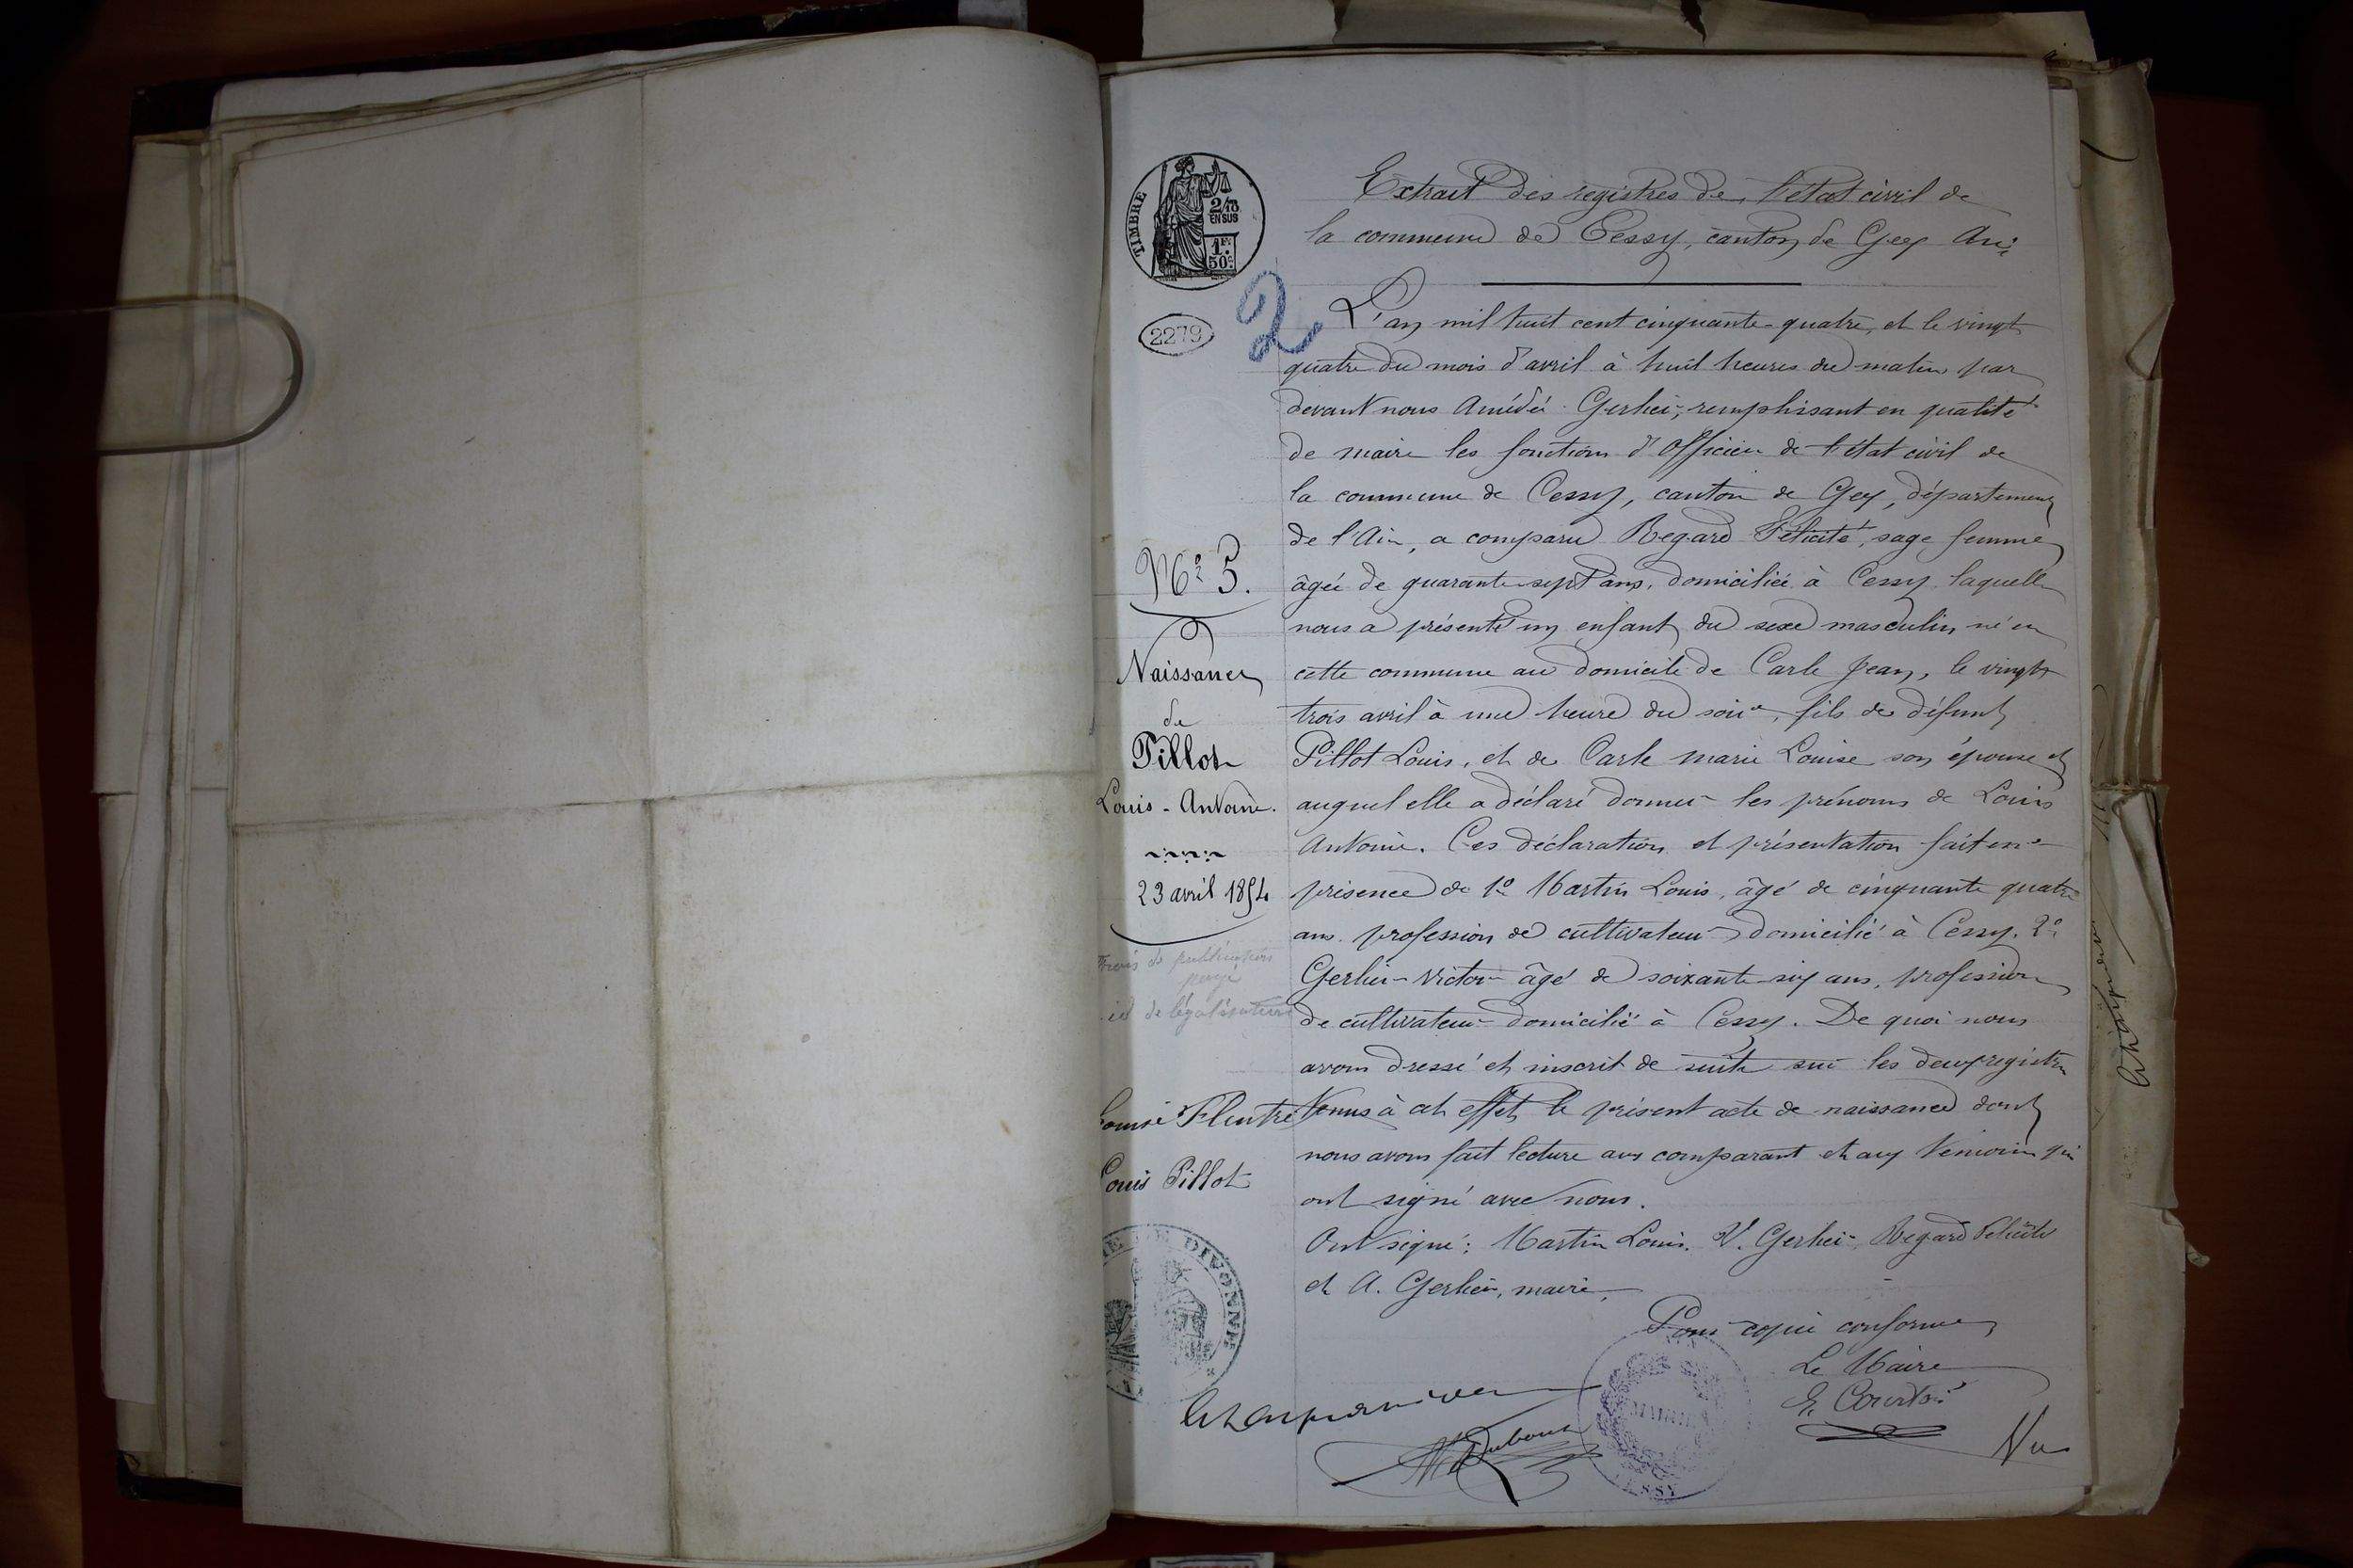 TIMBRE
2/10
EN SUS
1F.
50c.
2279
2
Extrait des registres de l'état civil de
la commune de Cessy, canton de Gex Ain
L'an mil huit cent cinquante-quatre, et le vingt
quatre du mois d'avril à huit heures du matin par
devant nous Amédée Gerlier, remplissant en qualité
de maire les fonctions d'officier de l'état civil de
la commune de Cessy, canton de Gex, département
de l'Ain, a comparu Regard Félicité, sage femme
âgée de quarante sept ans, domiciliée à Cessy laquelle
nous a présenté un enfant du sexe masculin né en
cette commune au domicile de Carle Jean, le vingt
trois avril à une heure du soir, fils de défunt
Pillot Louis, et de Carle Marie Louise son épouse et
auquel elle a déclaré donner les prénoms de Louis
Antoine. Ces déclaration et présentation fait en
présence de 1° Martin Louis, âgé de cinquante quatre
ans, profession de cultivateur domicilié à Cessy. 2°
Gerlier Victor âgé de soixante six ans, profession
de cultivateur domicilié à Cessy. De quoi nous
avons dressé et inscrit de suite sur les deux registres
tenus à cet effet le présent acte de naissance dont
nous avons fait lecture aux comparant et aux témoins qui
ont signé avec nous.
Ont signé: Martin Louis. V. Gerlier, Regard Félicité
et A. Gerlier, maire.
Pour copie conforme
Le Maire
E. Courtois
Vu
N° 5.
Naissance
de
Pillot
Louis-Antoine.
23 avril 1854
Frais de publication
payé
id de législation
Louise Fleutre
Louis Pillot
DE DIVONNE
MAIRIE
CESSY